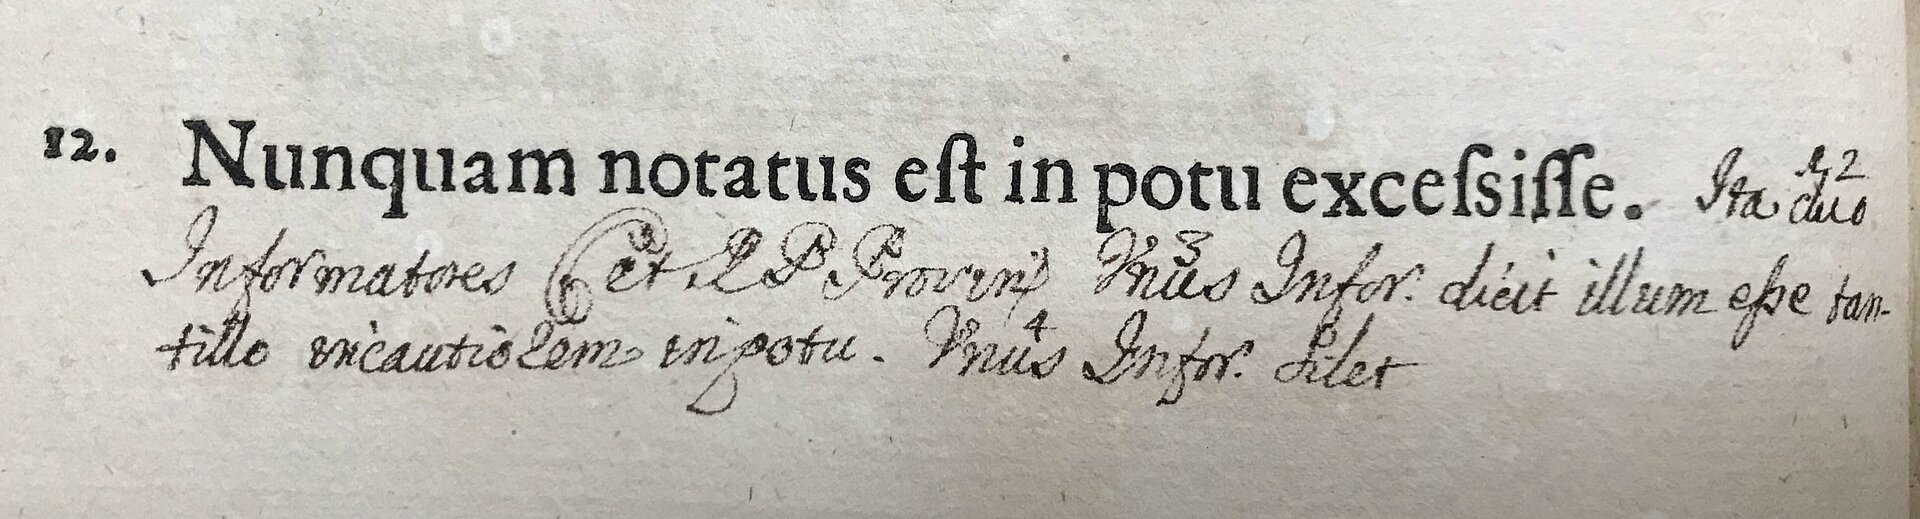 12. Nunquam notatus eſt in potu exceſsiſſe. Ita duo 1, 2
Informatores et P Provin Vnus 3 Infor. dicit illum eſse tan-
tillo incautiorem in potu. Vnus 4 Infor. silet